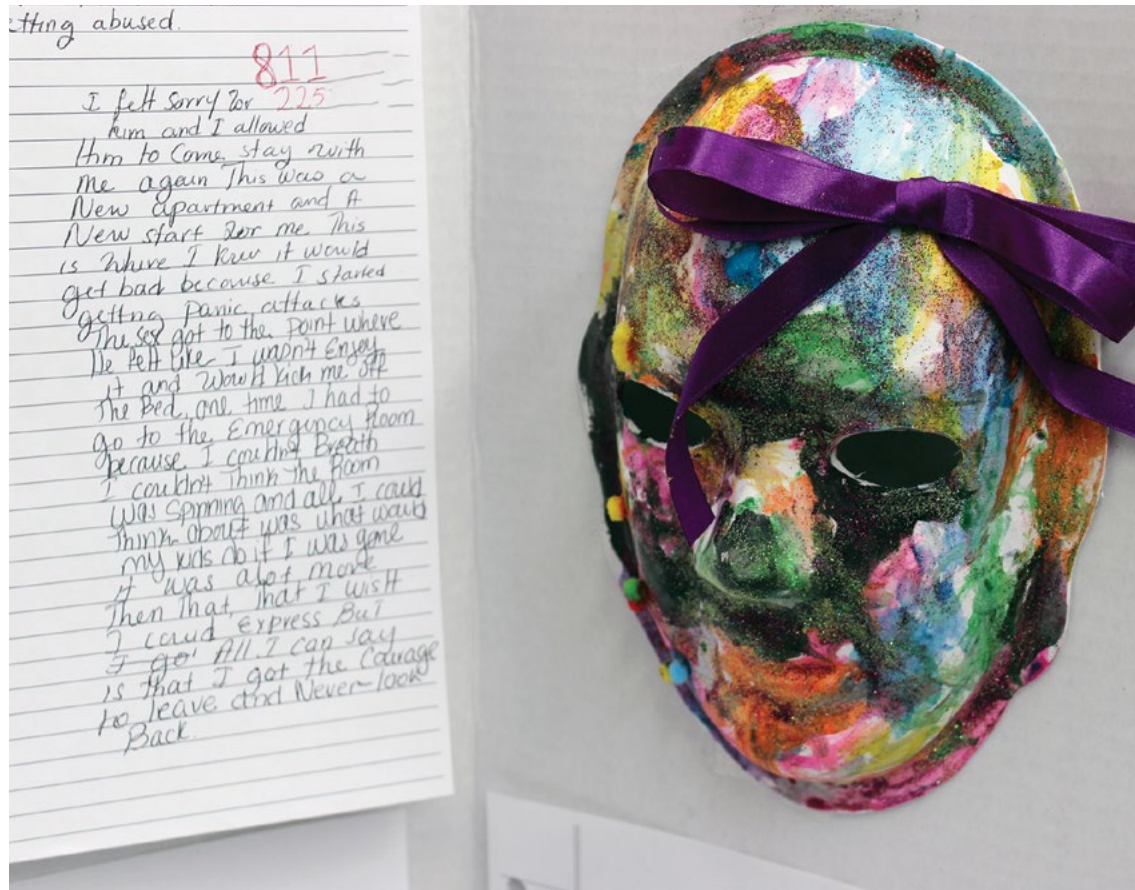 etting abused.
811
I felt sorry for 225
him and I allowed
Him to Come stay with
me again This was a
New apartment and A
New start for me This
is where I knew it would
get bad because I started
getting panic attacks
The sex got to the point where
He felt like I wasn't Enjoy
it and would kick me off
The Bed, one time I had to
go to the Emergency Room
because I couldn't Breath
I couldn't Think The Room
was spinning and all I could
think about was what would
my kids do if I was gone
it was alot more
Then That, That I wish
I could Express But
I go' All I can say
is that I got the Courage
to leave and Never look
Back.